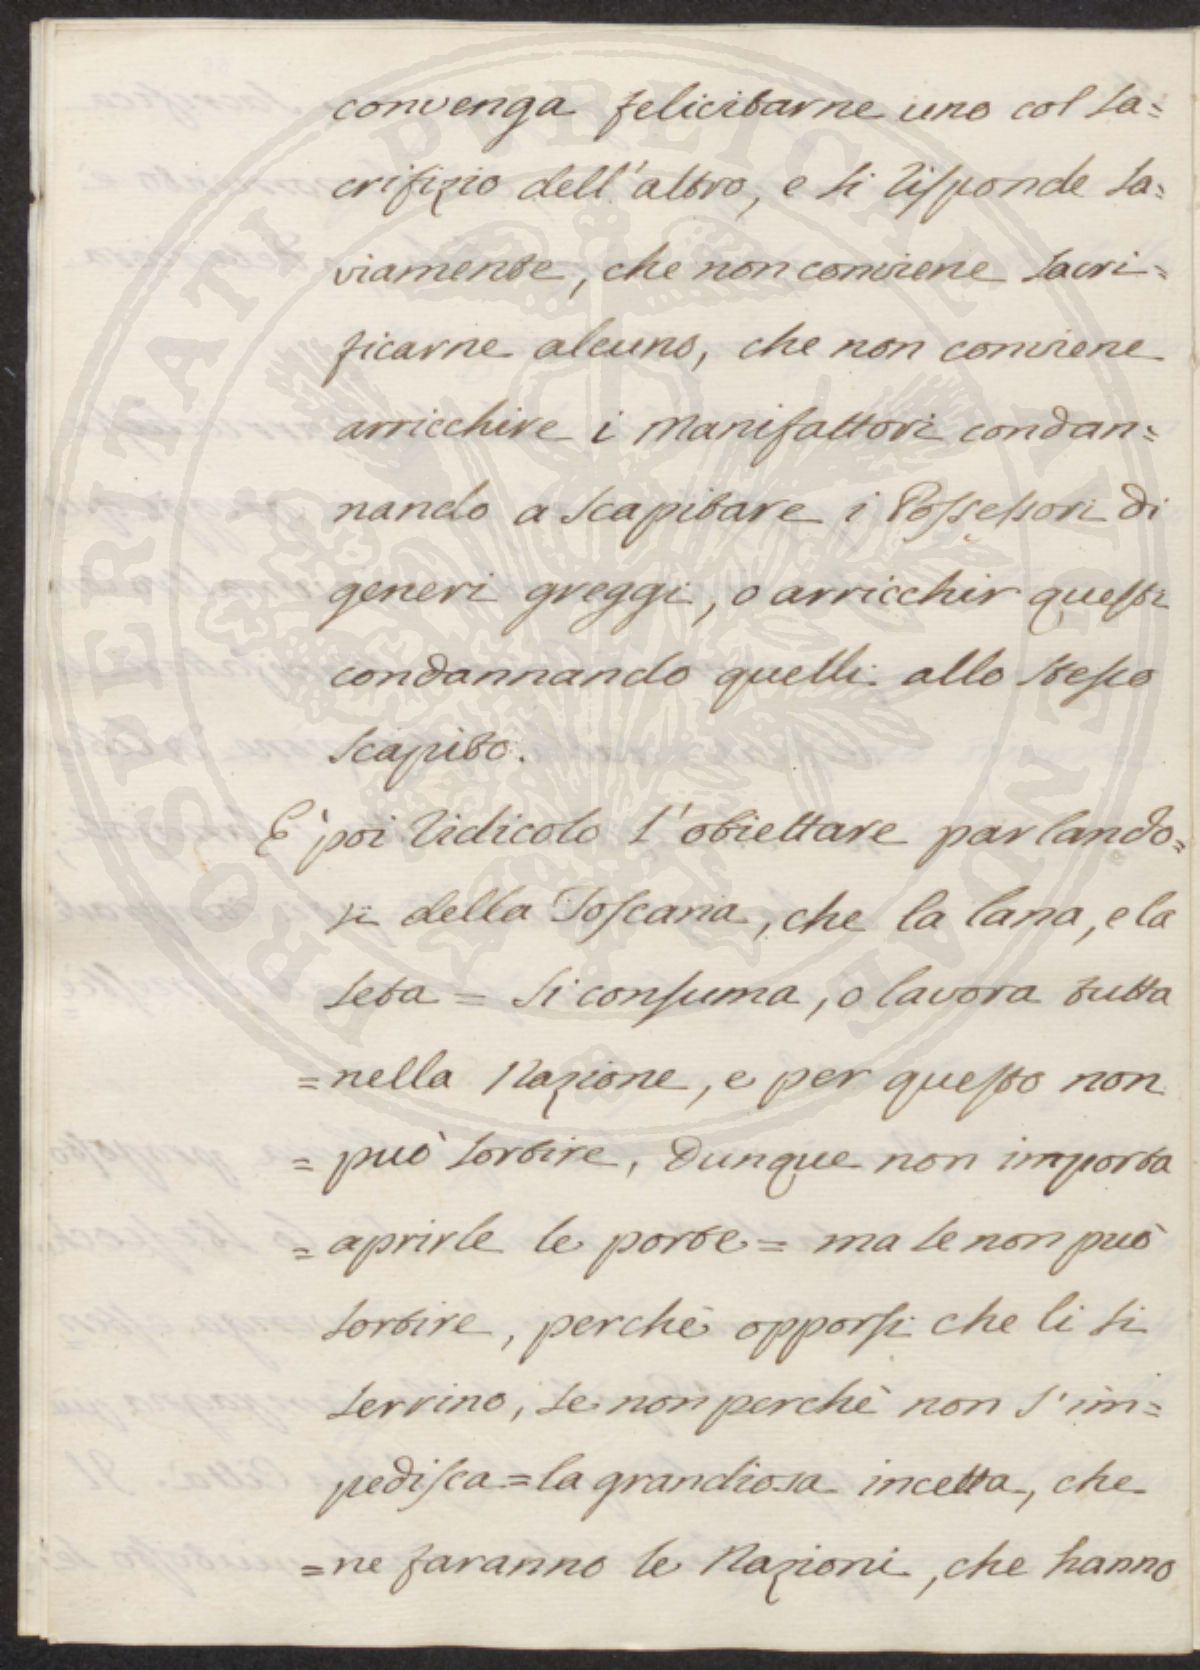 convenga felicitarne uno col sa=
crifizio dell'altro, e si risponde sa=
viamente, che non conviene sacri=
ficarne alcuno, che non conviene
arricchire i Manifattori condan=
nando a scapitare i Possessori di
generi greggi, o arricchir questi
condannando quelli allo stesso
scapito.
E' poi ridicolo l'obiettare parlando=
si della Toscana, che la lana, e la
seta = si consuma, o lavora tutta
= nella Nazione, e per questo non
= può sortire, dunque non importa
= aprirle le porte = ma se non può
sortire, perchè opporsi che li si
serrino, se non perchè non s'im=
pedisca = la grandiosa incetta, che
= ne faranno le Nazioni, che hanno
PROSPERITATI PUBLICAE AUGENDAE